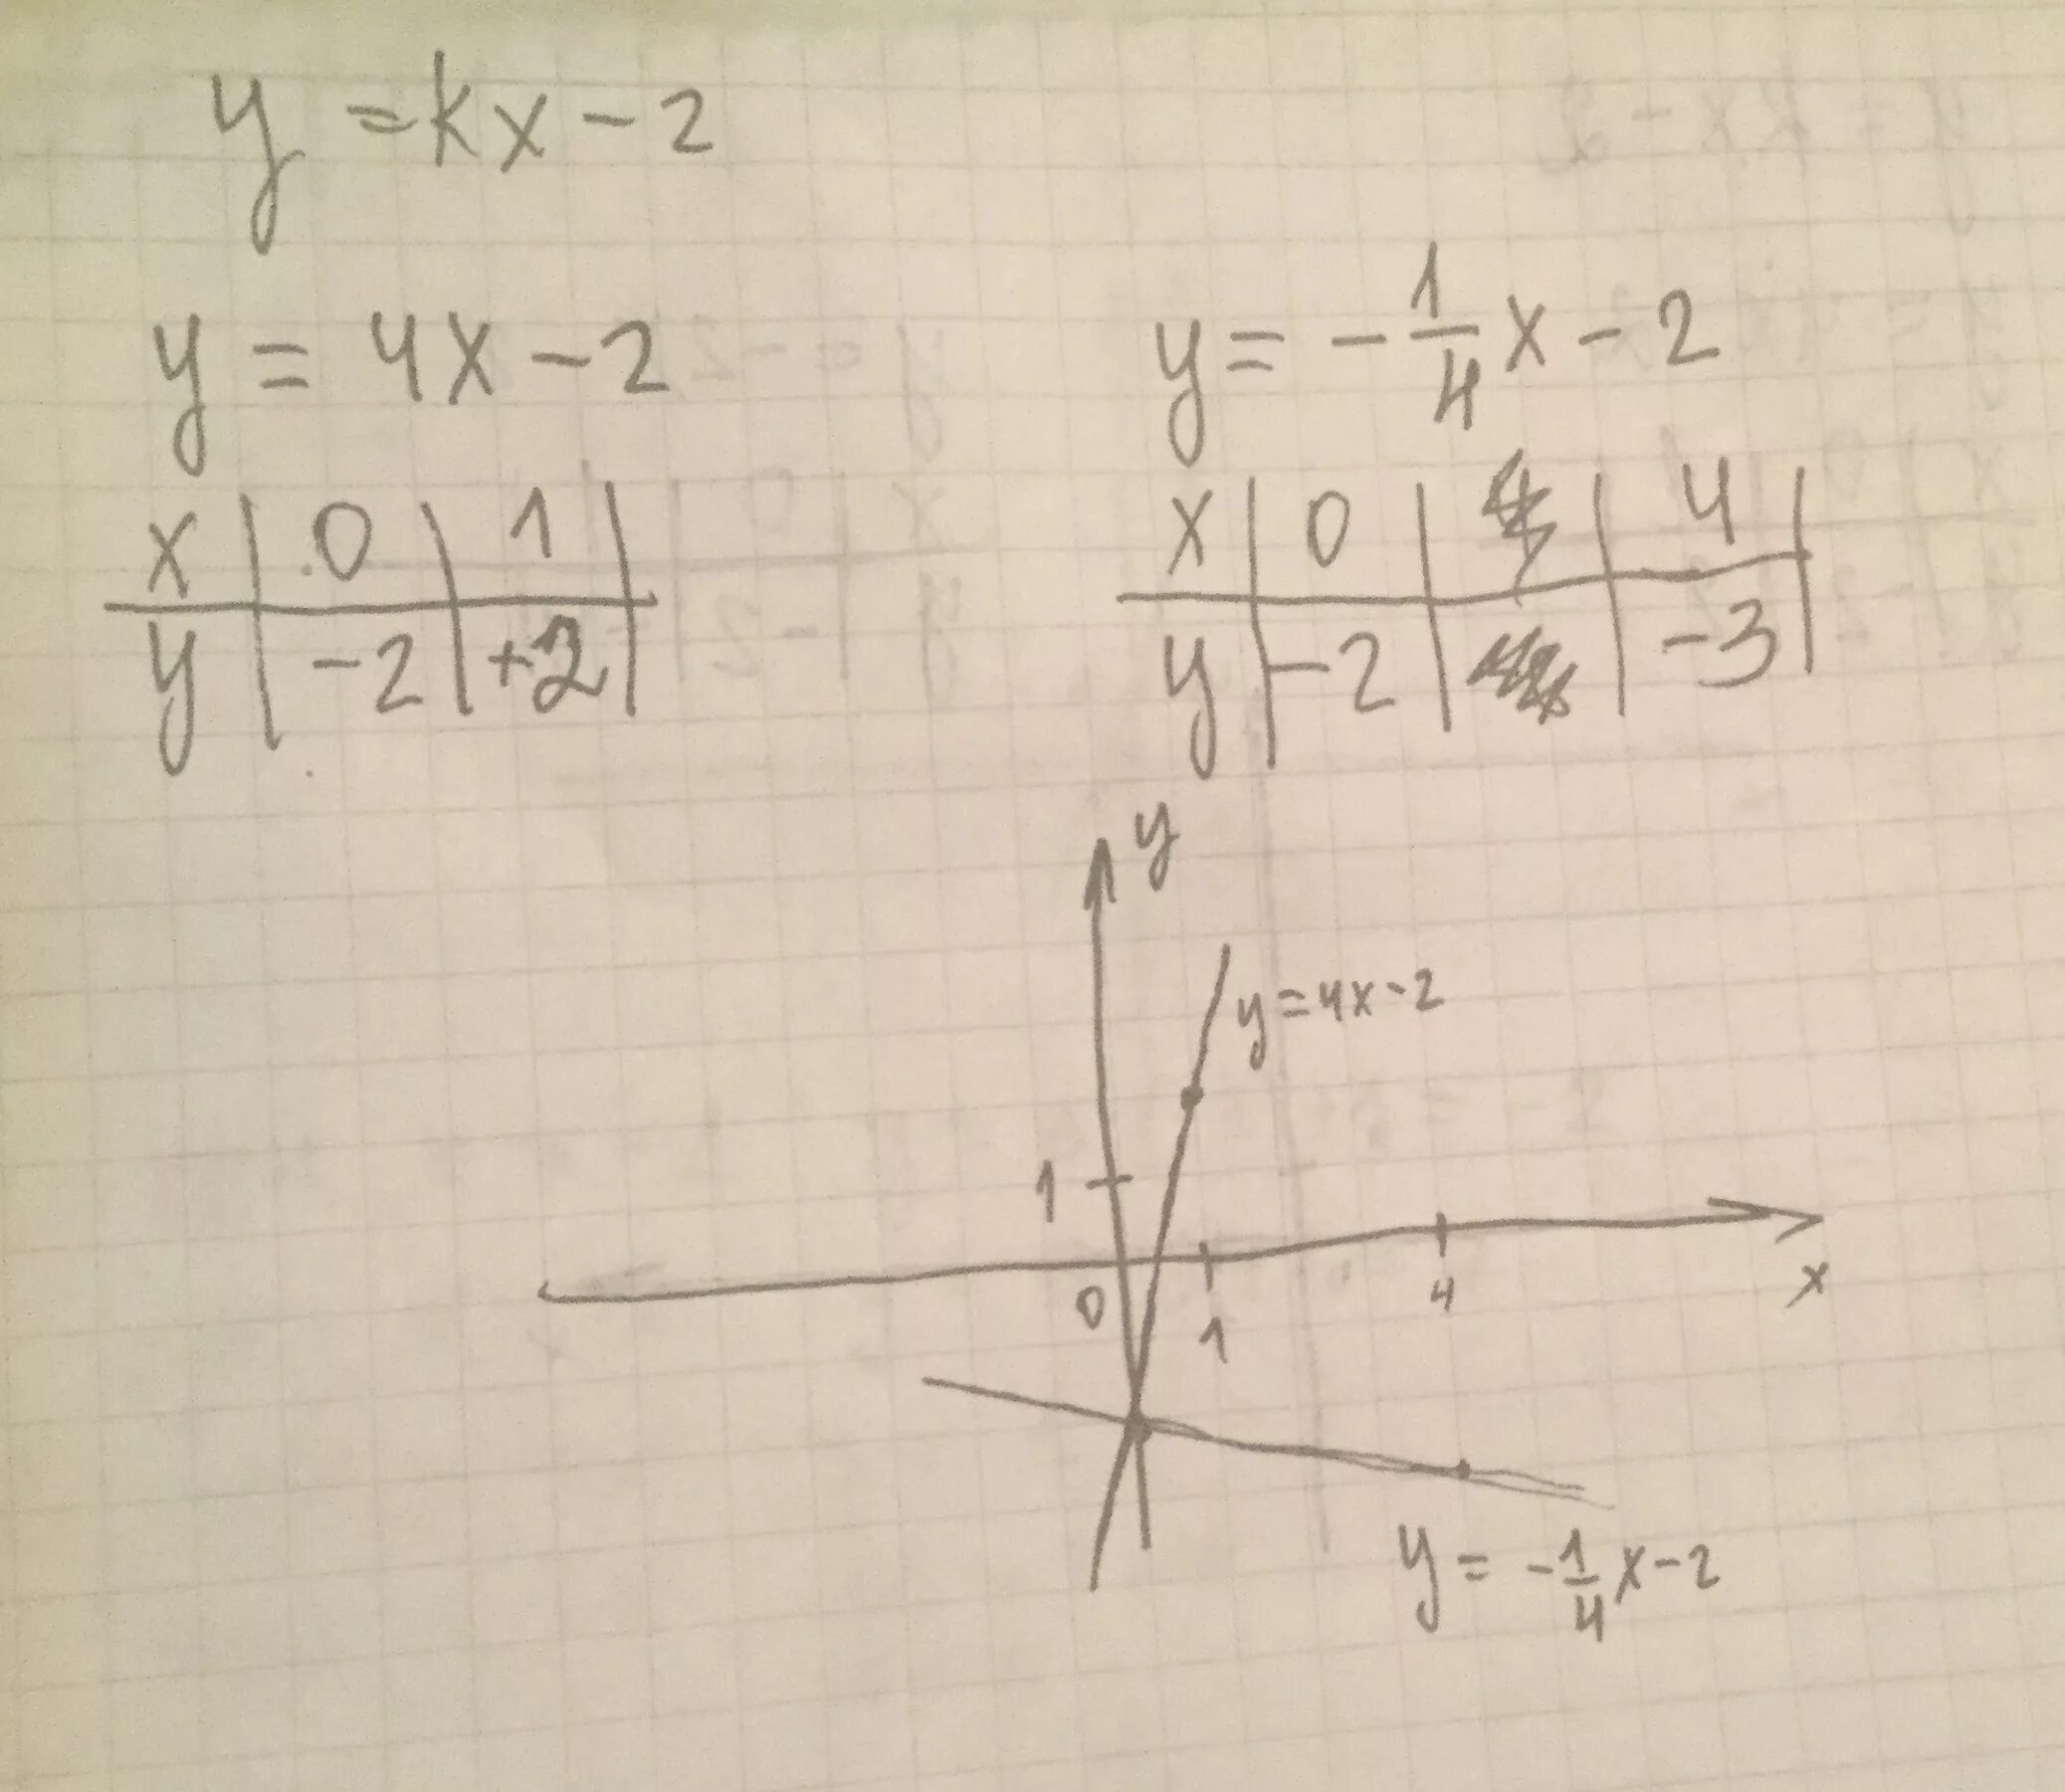 y = kx - 2
y = 4x - 2
x | 0 | 1 |
y | -2 | +2 |
y = - 1/4 x - 2
x | 0 | | 4 |
y | -2 | | -3 |
y
y = 4x - 2
1
0
1
4
x
y = - 1/4 x - 2